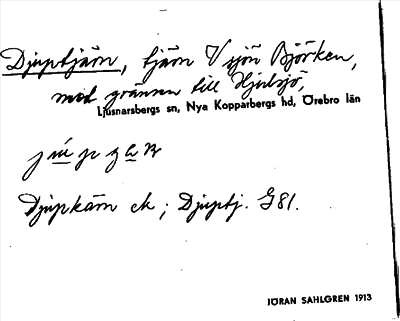 Djuptjärn, tjärn V sjön Björken,
mot gränsen till Hjulsjö,
Ljusnarsbergs sn, Nya Kopparbergs hd, Örebro län
Djupkärn ek; Djuptj. G81.
JÖRAN SAHLGREN 1913